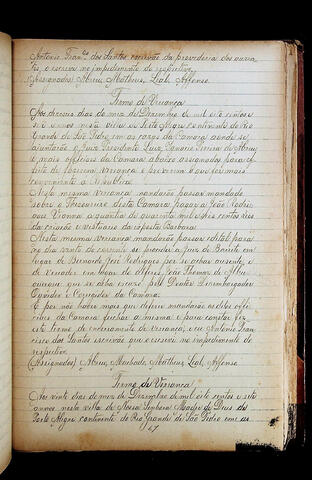 Antonio Fran.co dos Santos escrivão da provedoria dos auzen
tes, o escrevi no impedimento do respectivo.
(Assignados) Abreu, Matheus, Leal, Affonso.
Termo de Vereança
Aos dias do mez de Dezembro de mil oito centos e
sete annos nesta villa de Porto Alegre continente do Rio
Grande de São Pedro em as cazas da Camara aonde se
ajuntarão o Juiz Prezidente Luiz Ignacio Pereira de Abreu
e mais officiaes da Camara abaixo assignados para ef
feito de fazerem vereança e proverem o que for mais
conveniente á Republica.
Nesta mesma vereança mandarão passar mandado
sobre o Thezoureiro desta Camara pagar a João Rodri
gues Vianna a quantia de quarenta mil e seis centos réis
da criação e vestuario da exposta Barbara.
Nesta mesma vereança mandarão passar edital para
no dia vinte do corrente se proceder a Juiz de Barrete em
lugar de Bernardo José Rodrigues por se achar auzente, e
de vereador em lugar do alferes João Thomaz de Albu
querque que se acha escuzo pelo Doutor Dezembargador
Ouvidor e Corregedor da Comarca.
E por não haver mais que deferir mandarão os ditos offi
ciaes da Camara fechar a mesma e para constar fiz
este termo de encerramento de vereança; e eu Antonio Fran
cisco dos Santos escrivão que o escrevi no impedimento do
respectivo.
(Assignados) Abreu, Machado, Matheus, Leal, Affonso.
Termo de Vereança
Aos vinte dias do mez de Dezembro de mil oito centos e sete
annos nesta villa de Nossa Senhora Madre de Deus de
Porto Alegre continente do Rio Grande de São Pedro em as
67